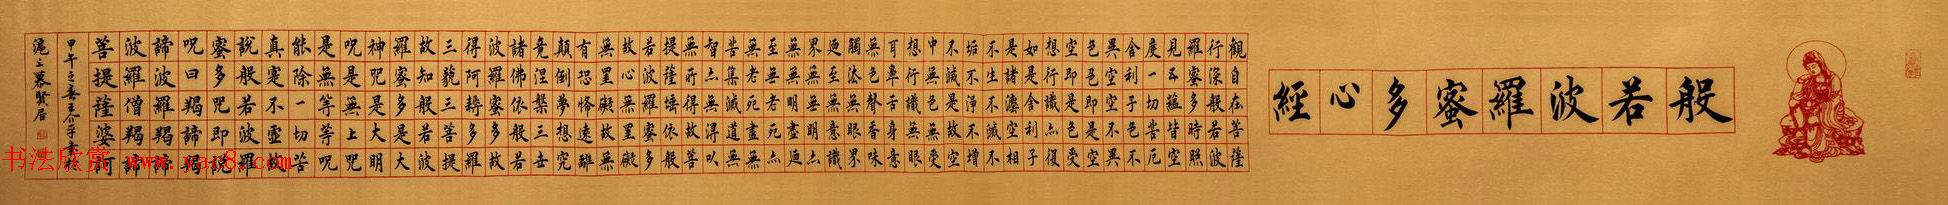 般若波羅蜜多心經
觀自在菩薩
行深般若波
羅蜜多時照
見五蘊皆空
度一切苦厄
舍利子色不
異空空不異
色色即是空
空即是色受
想行識亦復
如是舍利子
是諸法空相
不生不滅不
垢不淨不增
不減是故空
中無色無受
想行識無眼
耳鼻舌身意
無色聲香味
觸法無眼界
迺至無意識
界無無明亦
無無明盡迺
至無老死亦
無老死盡無
苦集滅道無
智亦無得以
無所得故菩
提薩埵依般
若波羅蜜多
故心無罣礙
無罣礙故無
有恐怖遠離
顛倒夢想究
竟涅槃三世
諸佛依般若
波羅蜜多故
得阿耨多羅
三藐三菩提
故知般若波
羅蜜多是大
神呪是大明
呪是無上呪
是無等等呪
能除一切苦
真實不虛故
說般若波羅
蜜多呪即說
呪曰羯諦羯
諦波羅羯諦
波羅僧羯諦
菩提薩婆訶
甲午之春
滬上慕賢居
书法欣赏 www.yac8.com